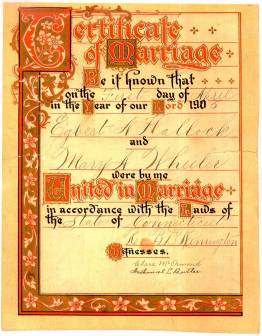 Certificate
of Marriage
Be it known that
on the First day of April
in the Year of our Lord 190
Egbert N Hallock
and
Mary A Wheeler
were by me
United in Marriage
in accordance with the Laws of
the State of Connecticut
Witnesses.